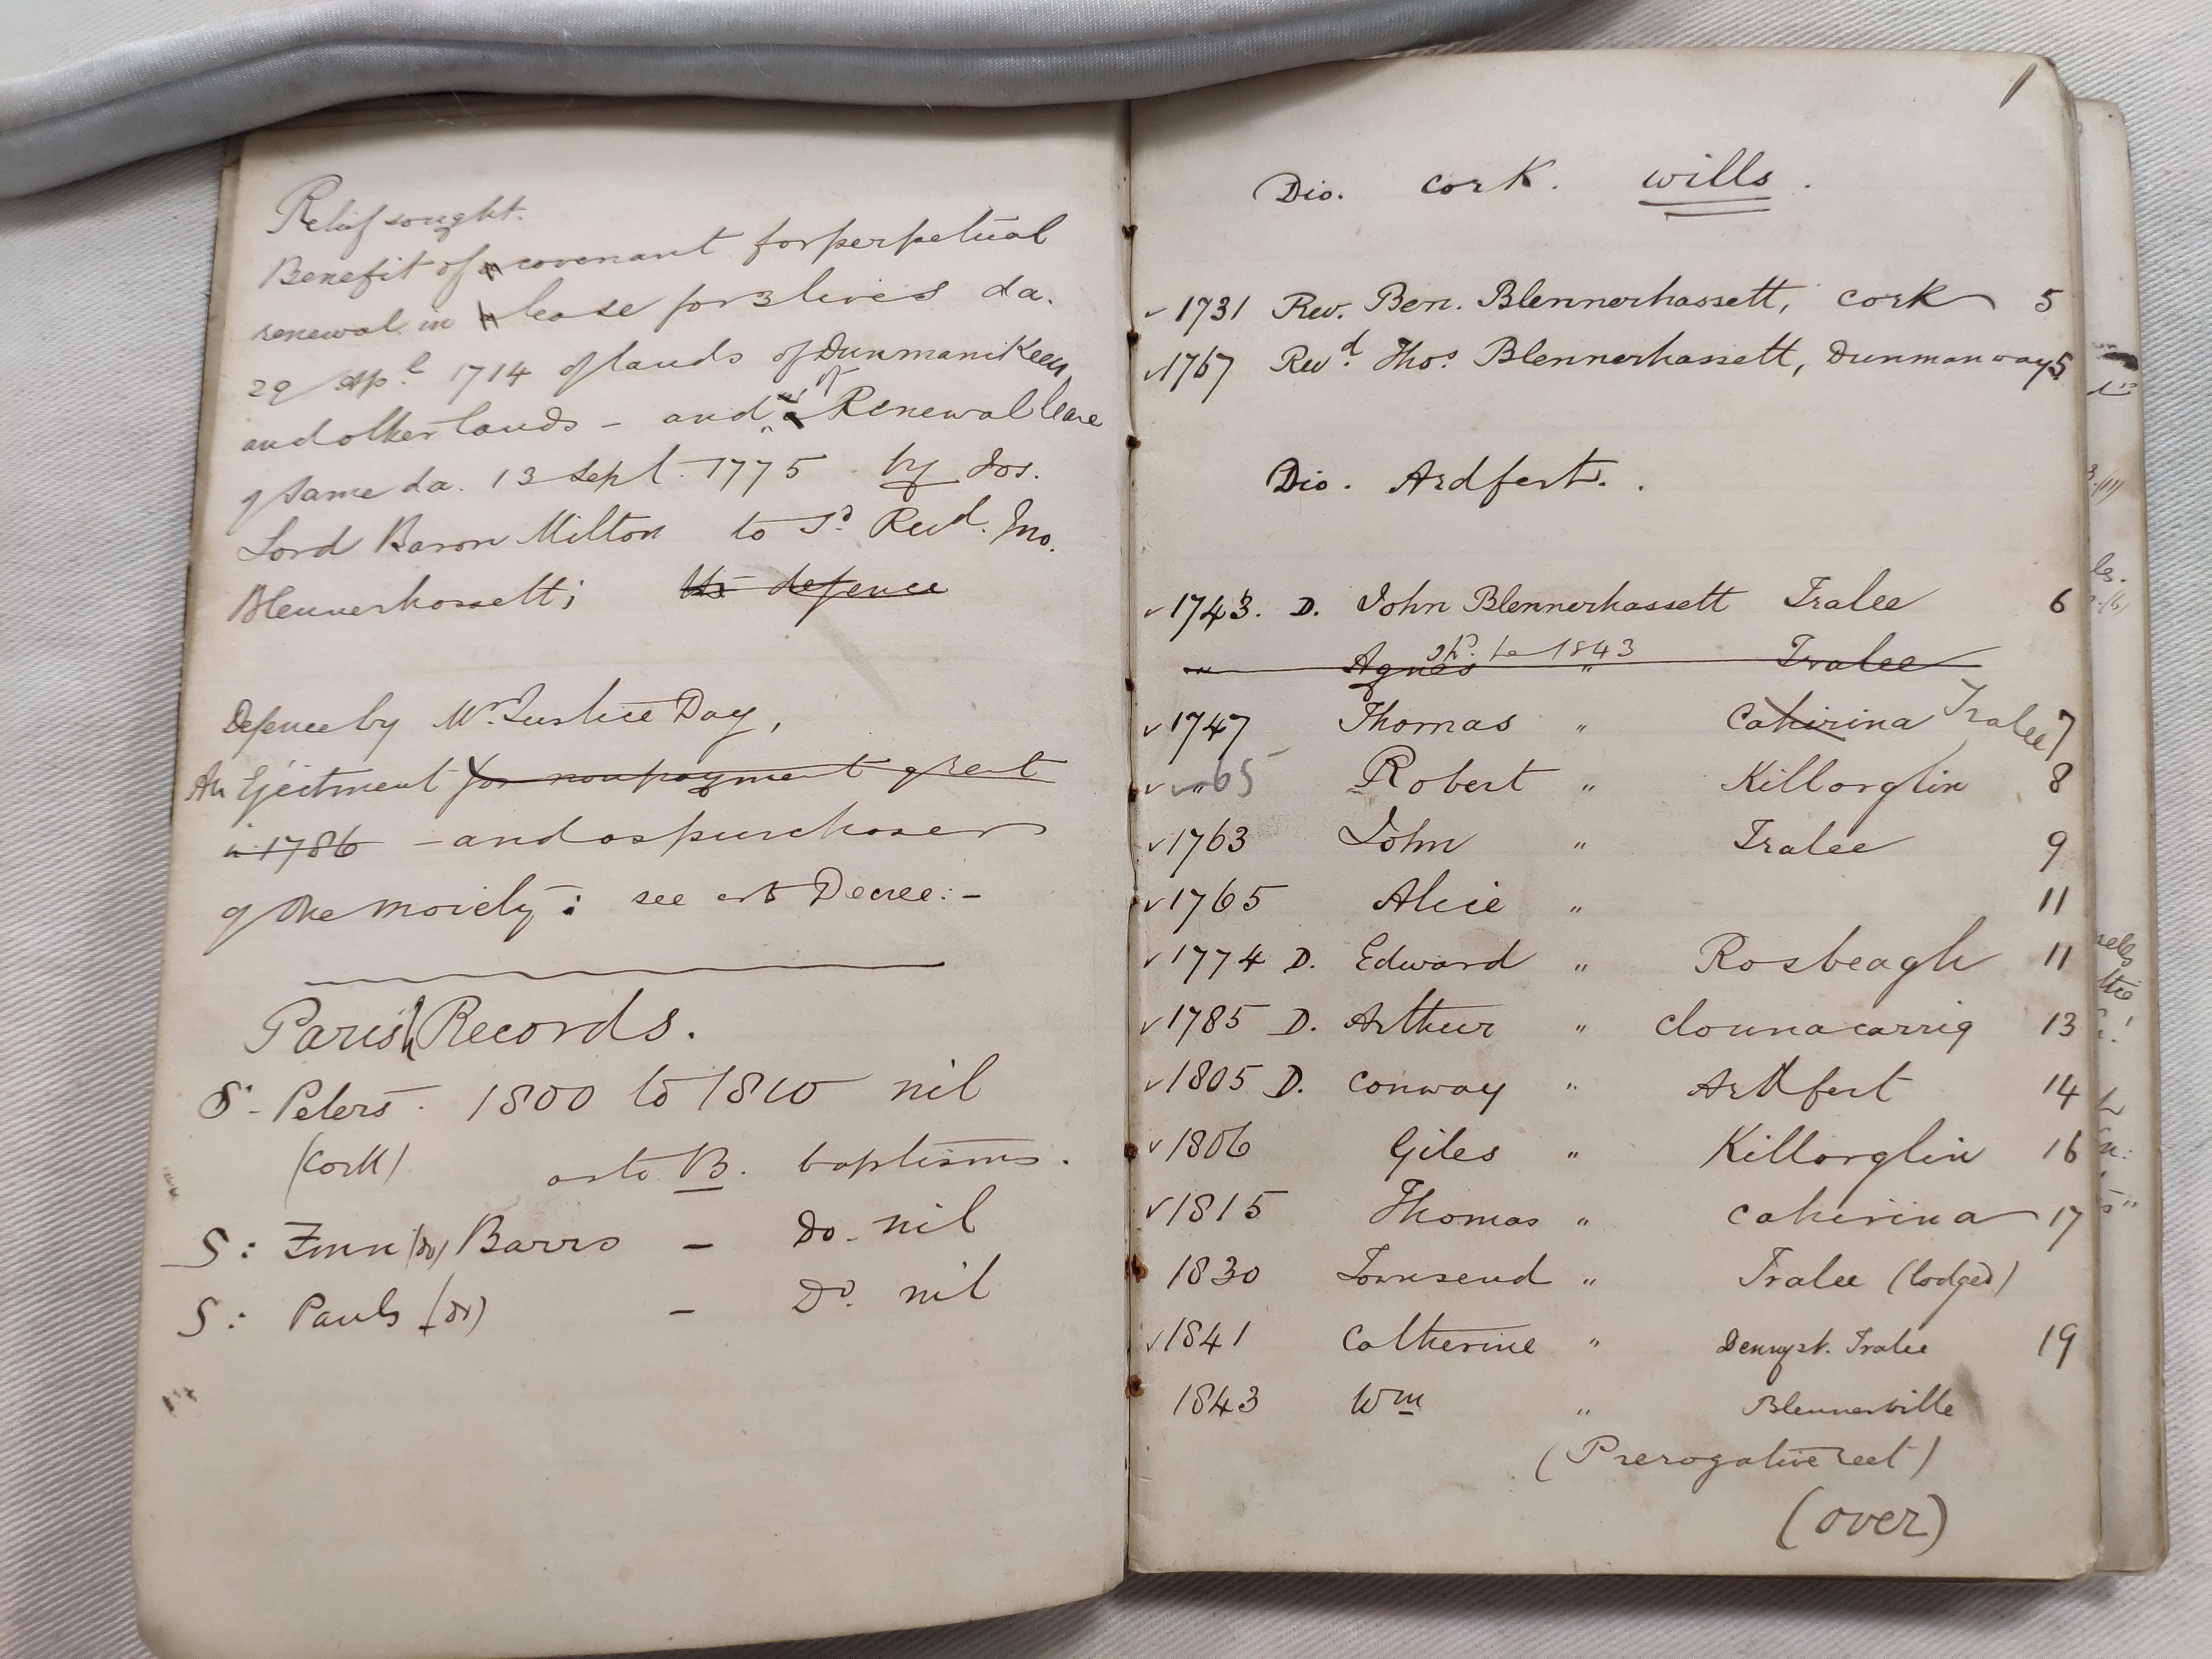 Relief sought.
Benefit of covenant for perpetual
renewal in lease for 3 lives da.
29 Apl. 1714 of lands of Dunmanikeen,
and other lands – and of Renewal lease
of same da. 13 Sept. 1775 by Jos.
Lord Baron Milton to sd Revd. Jno.
Blennerhassett; defence
Defence by Mr. Justice Day,
An Ejectment for nonpayment of rent
in 1786 – and as purchaser
of the moiety: see Decree:-
Parish Records.
S. Peters. 1800 to 1810 nil
(Cork) as to B. baptisms.
S: Finn (do) Barrs – Do. nil
S: Pauls (do) – Do. nil
1
Dio. Cork. Wills.
✓ 1731 Rev. Ben. Blennerhassett, Cork 5
✓ 1767 Revd Thos. Blennerhassett, Dunmanway 5
Dio. Ardfert.
✓ 1743. D. John Blennerhassett Tralee 6
" Agnes " Tralee
sd. be 1843
✓ 1747 Thomas " Cahirina Tralee 7
✓ " 65 Robert " Killorglin 8
✓ 1763 John " Tralee 9
✓ 1765 Alice " 11
✓ 1774 D. Edward " Rosbeagh 11
✓ 1785 D. Arthur " Clounacarrig 13
✓ 1805 D. Conway " Ardfert 14
✓ 1806 Giles " Killorglin 16
✓ 1815 Thomas " Cahirina 17
1830 Townsend " Tralee (lodged)
✓ 1841 Catherine " Denny st. Tralee 19
1843 Wm " Blennerville
(Prerogative)
(over)